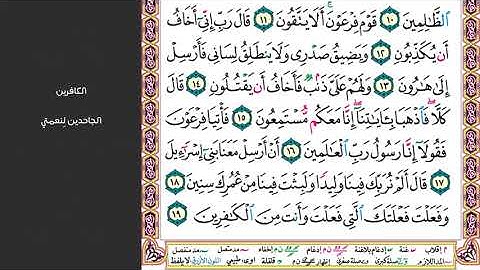 الكافرين
الجاحدين لنعمتي
ٱلظَّٰلِمِينَ ١٠ قَوْمَ فِرْعَوْنَ ۚ أَلَا يَتَّقُونَ ١١ قَالَ رَبِّ إِنِّىٓ أَخَافُ
أَن يُكَذِّبُونِ ١٢ وَيَضِيقُ صَدْرِى وَلَا يَنطَلِقُ لِسَانِى فَأَرْسِلْ
إِلَىٰ هَٰرُونَ ١٣ وَلَهُمْ عَلَىَّ ذَنۢبٌ فَأَخَافُ أَن يَقْتُلُونِ ١٤ قَالَ
كَلَّا ۖ فَٱذْهَبَا بِـَٔايَٰتِنَآ ۖ إِنَّا مَعَكُم مُّسْتَمِعُونَ ١٥ فَأْتِيَا فِرْعَوْنَ
فَقُولَآ إِنَّا رَسُولُ رَبِّ ٱلْعَٰلَمِينَ ١٦ أَنْ أَرْسِلْ مَعَنَا بَنِىٓ إِسْرَٰٓءِيلَ
١٧ قَالَ أَلَمْ نُرَبِّكَ فِينَا وَلِيدًا وَلَبِثْتَ فِينَا مِنْ عُمُرِكَ سِنِينَ ١٨
وَفَعَلْتَ فَعْلَتَكَ ٱلَّتِى فَعَلْتَ وَأَنتَ مِنَ ٱلْكَٰفِرِينَ ١٩